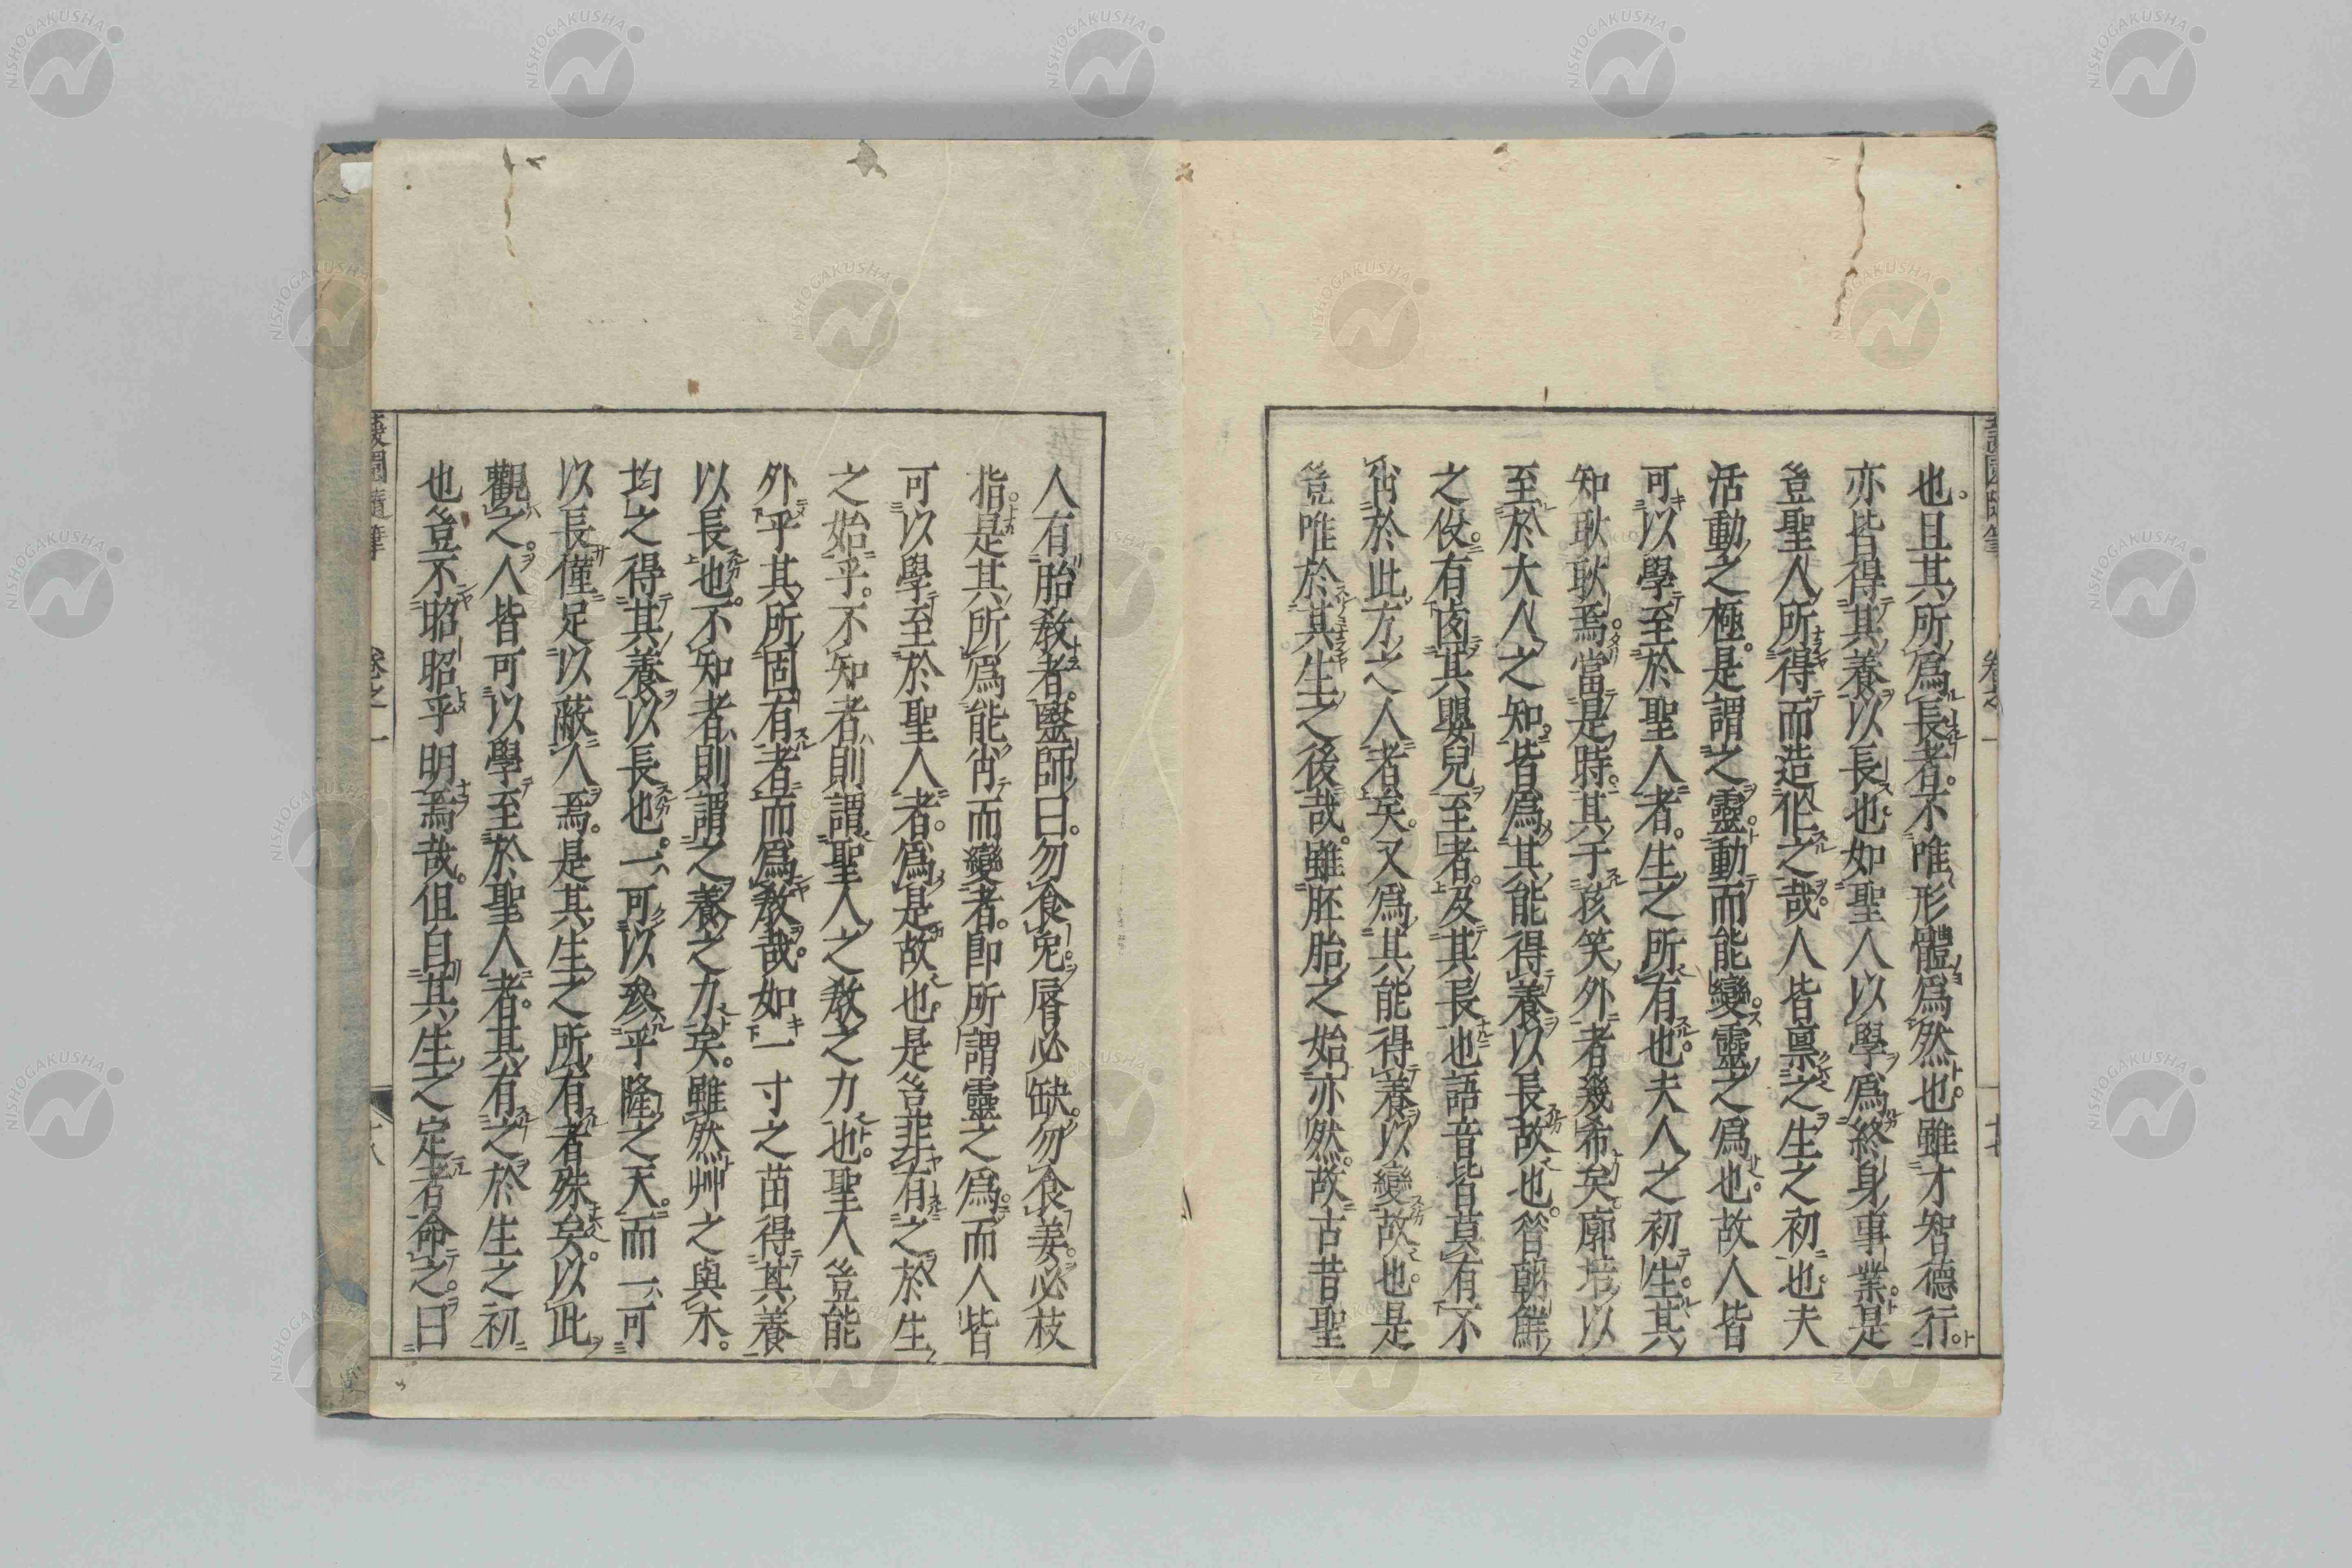 也。且其所爲長者。不唯形體爲然也。雖才智德行
亦皆得其養以長也如聖人以學爲終身事業是
豈聖人所得而造化之哉。人皆禀之生之初也。夫
活動之極。是謂之靈。動而能變。靈之爲也。故人皆
可以學至於聖人者。生之所有也。夫人之初生。其
知耿耿焉。當是時。其于孩笑外者幾希矣廓培以
至於大人之知。皆爲其能得養以長故也。管朝鮮
之伇。有𠧧其嬰兒至者。及其長也語音皆莫有不
肖於此方之人者矣。又爲其能得養以變故也。是
豈唯於其生之後哉。雖胚胎之始亦然。故古昔聖
人有胎敎者。醫師曰。勿食兔。脣必缺。勿食姜。必枝
指。是其所爲能肖而變者。即所謂靈之爲。而人皆
可以學至於聖人者。爲是故也。是豈非有之於生
之始乎。不知者則謂聖人之敎之力也。聖人豈能
外乎其所固有者而爲敎哉。如一寸之苗得其養
以長也。不知者則謂之養之力矣。雖然艸之與木。
均之得其養以長也。一可以參乎隆之天。而一可
以長僅足以蔽人焉。是其生之所有者殊矣。以此
觀之。人皆可以學至於聖人者。其有之於生之初
也豈不昭昭乎明焉哉。但自其生之定者命之。曰
蘐園隨筆 卷之一